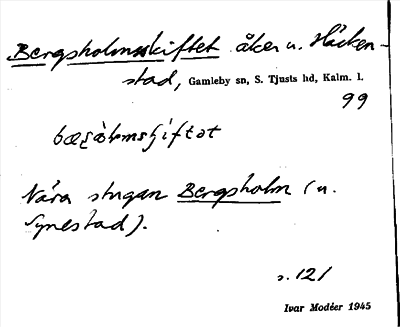 Bergsholmsskiftet åker u. Häcken-
stad, Gamleby sn, S. Tjusts hd, Kalm. l.
99
Nära stugan Bergsholm (u.
Synestad).
s. 121
Ivar Modéer 1945